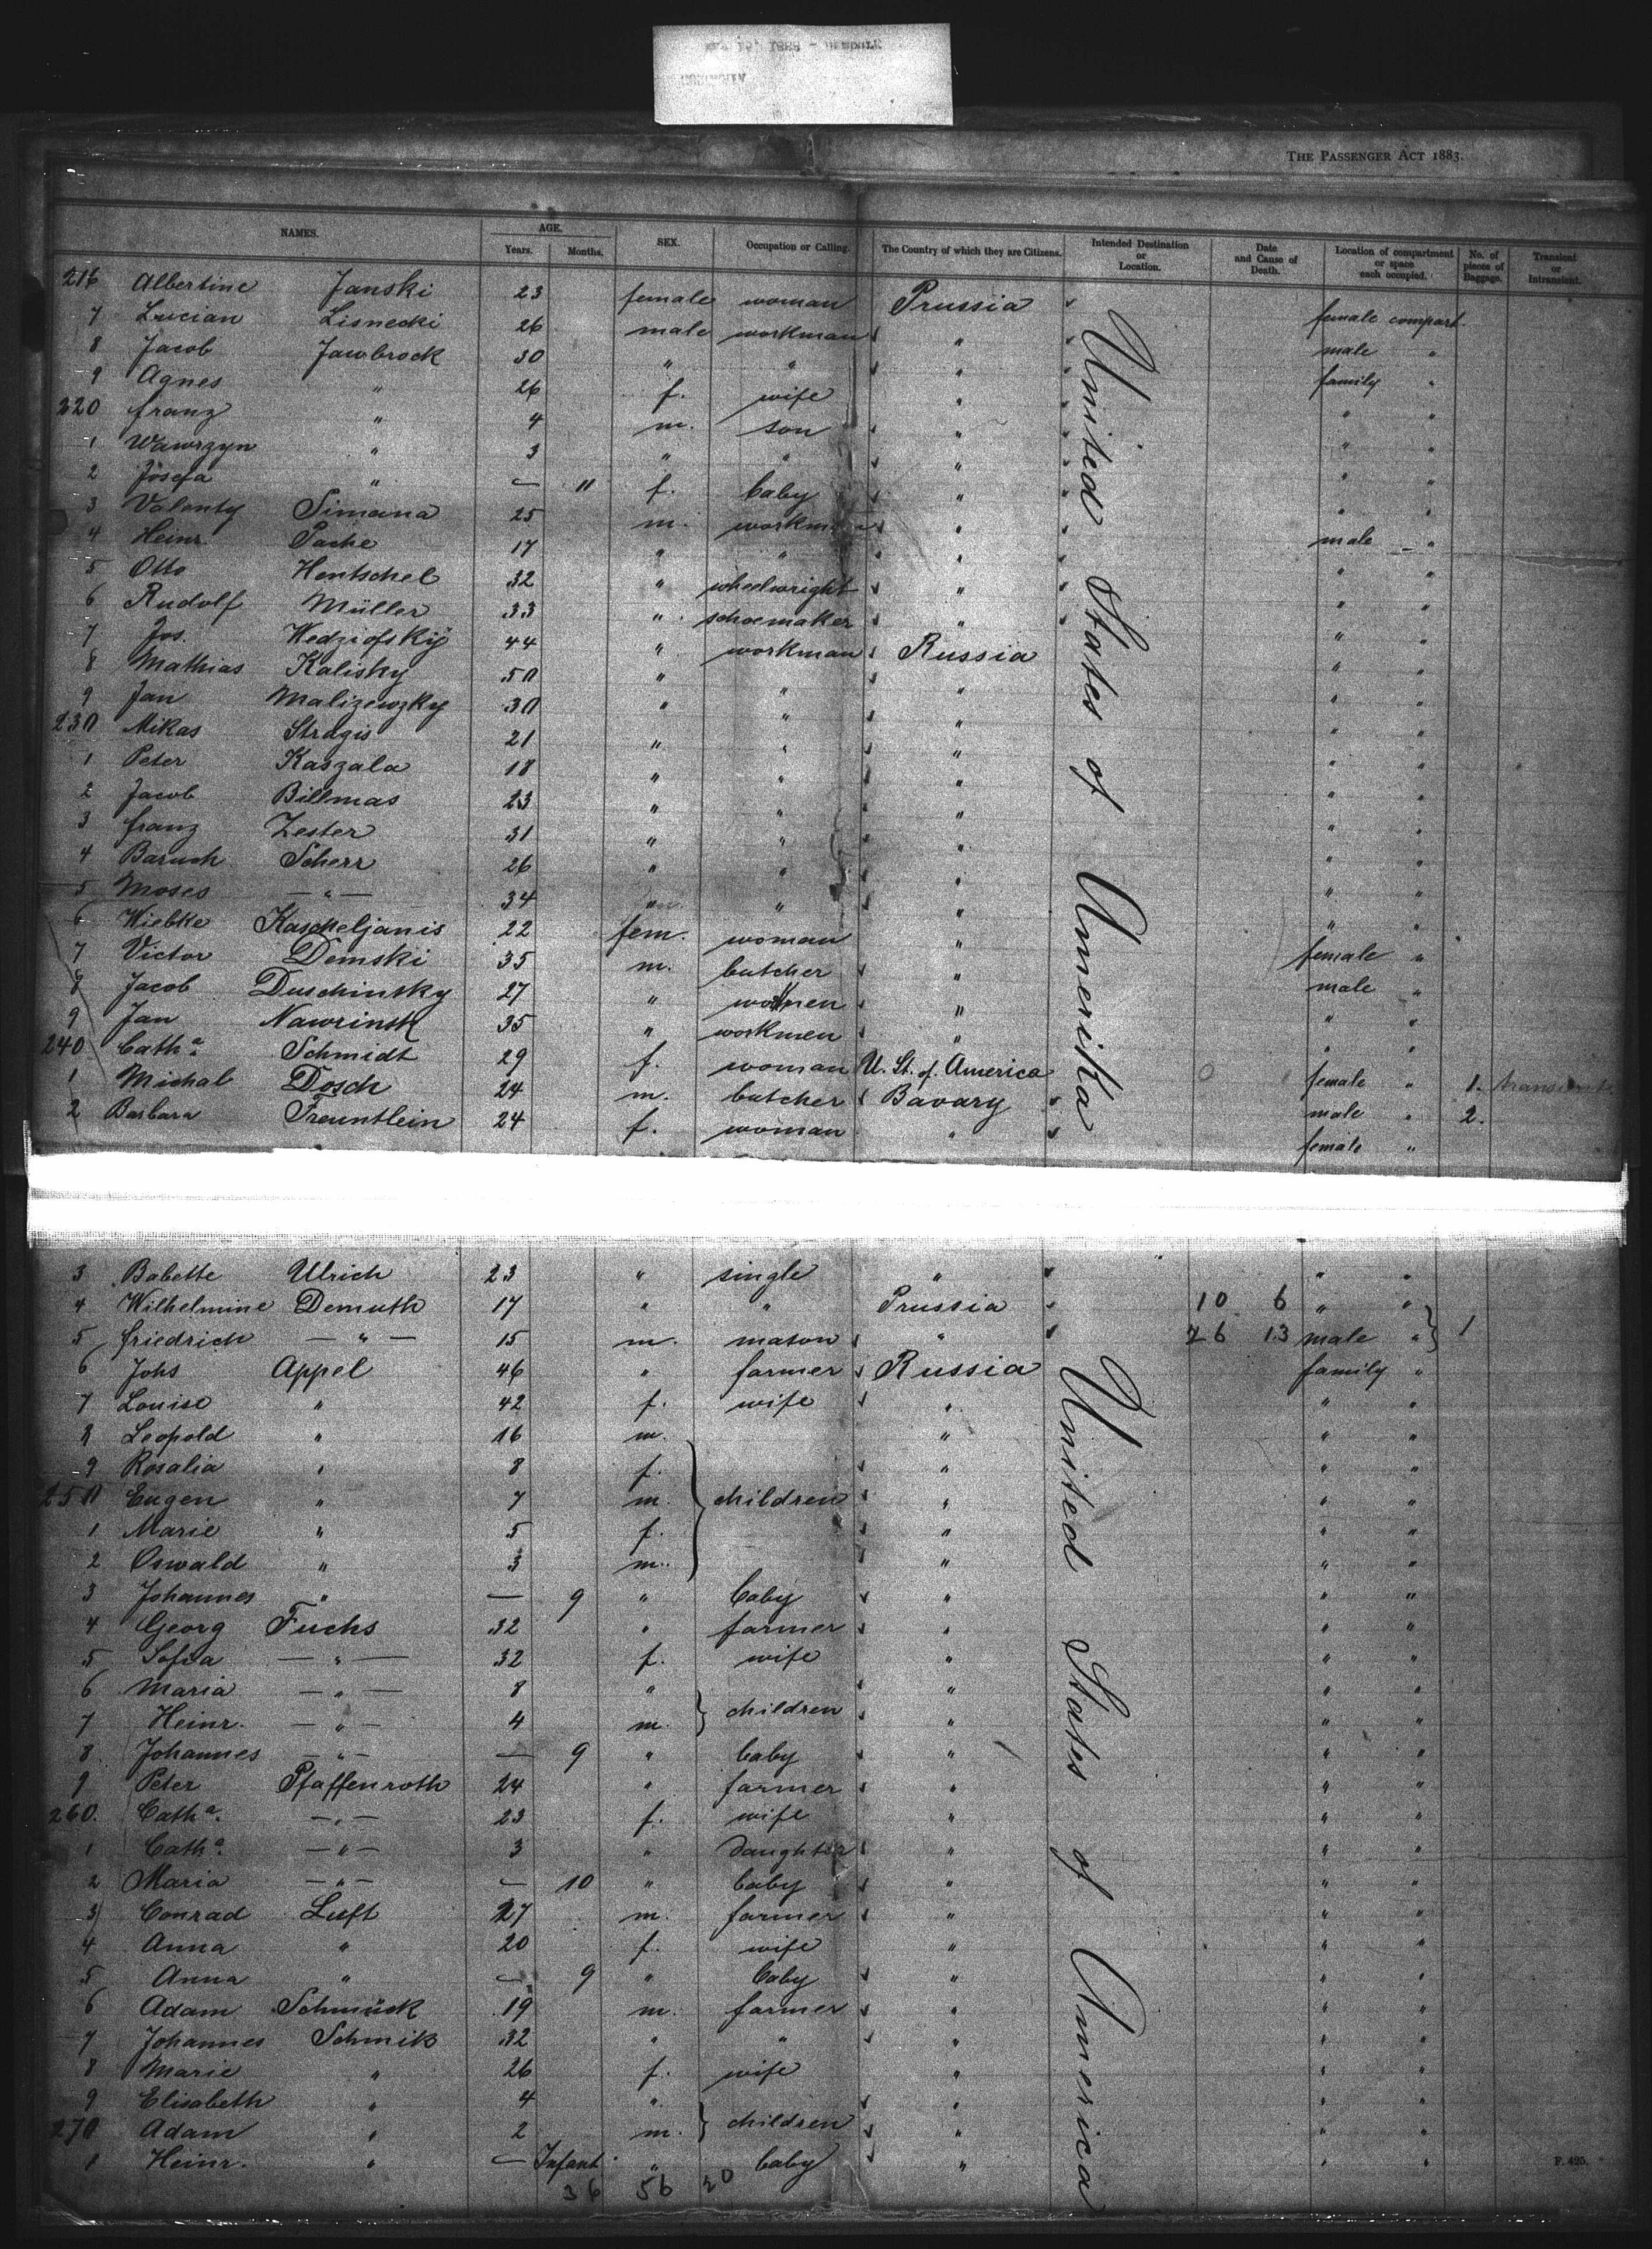 1888
THE PASSENGER ACT 1883.
NAMES. AGE. Years. Months. SEX. Occupation or Calling. The Country of which they are Citizens. Intended Destination or Location. Date and Cause of Death. Location of compartment or space each occupied. No. of pieces of Baggage. Transient or Intransient.
216 Albertine Janski 23 female woman Prussia female compart.
7 Lucian Lisnecki 26 male workman " male "
8 Jacob Jawbrock 30 " " " family "
9 Agnes " 26 f. wife " " "
220 Franz " 4 m. son " " "
1 Wawrzyn " 3 " " " " "
2 Josefa " — 11 f. baby " " "
3 Valenty Simana 25 m. workman " male "
4 Heinr. Pache 17 " " " " "
5 Otto Hentschel 32 " wheelwright " " "
6 Rudolf Müller 33 " schoemaker " " "
7 Jos. 44 " workman Russia " "
8 Mathias Kalisky 50 " " " " "
9 Jan Malizewzky 30 " " " " "
230 Mikas Stragis 21 " " " " "
1 Peter Kaszala 18 " " " " "
2 Jacob Billmas 23 " " " " "
3 Franz Zester 31 " " " " "
4 Baruch Scherr 26 " " " " "
5 Moses — " — 34 " " " " "
6 Wiebke Kascheljanis 22 fem. woman " female "
7 Victor Demski 35 m. butcher " male "
8 Jacob Duschinsky 27 " " " "
9 Jan Nawrinsk 35 " workmen " " "
240 Catha. Schmidt 29 f. woman U. St. of America female " 1. transient
1 Michal Dosch 24 m. butcher Bavary male " 2.
2 Barbara Freuntlein 24 f. woman " female "
United States of Amerika
3 Babette Ulrich 23 " single " " " "
4 Wilhelmine Demuth 17 " " Prussia 10 6 " "
5 Friedrich — " — 15 m. mason " 26 13 male " 1
6 Johs Appel 46 " farmer Russia family "
7 Louise " 42 f. wife " " "
8 Leopold " 16 m. " " "
9 Rosalia " 8 f. " " "
250 Eugen " 7 m. children " " "
1 Marie " 5 f. " " "
2 Oswald " 3 m. " " "
3 Johannes " — 9 " baby " " "
4 Georg Fuchs 32 " farmer " " "
5 Sofia — " — 32 f. wife " " "
6 Maria — " — 8 " children " " "
7 Heinr. — " — 4 m. " " "
8 Johannes — " — — 9 " baby " " "
9 Peter Pfaffenroth 24 " farmer " " "
260. Catha. — " — 23 f. wife " " "
1 Catha. — " — 3 " daughter " " "
2 Maria — " — — 10 " baby " " "
3 Conrad Luft 27 m. farmer " " "
4 Anna " 20 f. wife " " "
5 Anna " — 9 " baby " " "
6 Adam Schmück 19 m. farmer " " "
7 Johannes Schmik 32 " " " " "
8 Marie " 26 f. wife " " "
9 Elisabeth " 4 " " " "
270 Adam " 2 m. children " " "
1 Heinr. " — Infant " baby " " "
United States of America
36 56 20
F. 425.